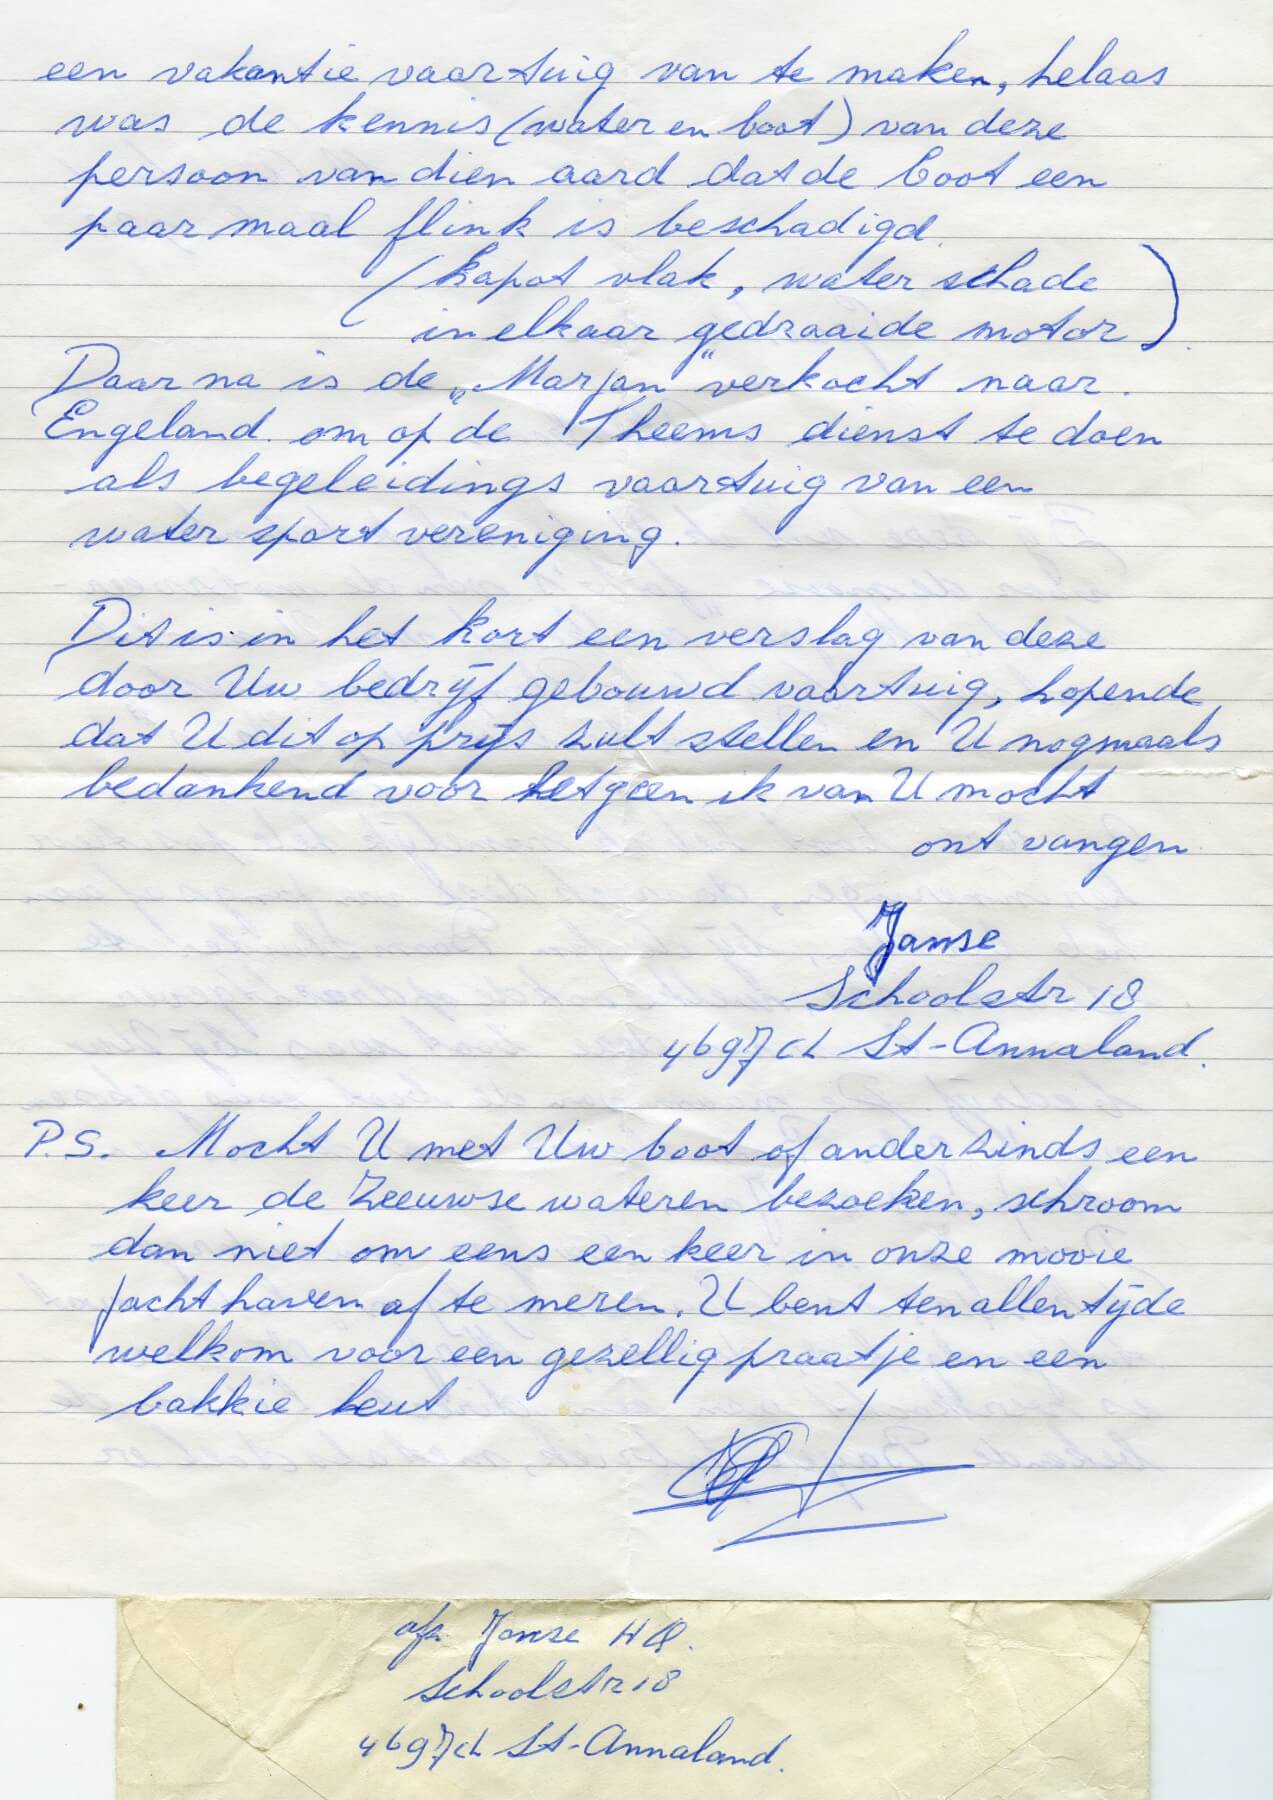 een vakantie vaartuig van te maken, helaas
was de kennis (water en boot) van deze
persoon van dien aard dat de boot een
paar maal flink is beschadigd.
(kapot vlak, water schade
in elkaar gedraaide motor).
Daar na is de „Marjan" verkocht naar.
Engeland om op de Theems dienst te doen
als begeleidings vaartuig van een
water sport vereniging.
Dit is in het kort een verslag van deze
door Uw bedrijf gebouwd vaartuig, hopende
dat U dit op prijs zult stellen en U nogmaals
bedankend voor hetgeen ik van U mocht
ont vangen
Janse
Schoolstr 18
4697 CL St-Annaland.
P.S. Mocht U met Uw boot of anderzinds een
keer de Zeeuwse wateren bezoeken, schroom
dan niet om eens een keer in onze mooie
jacht haven af te meren. U bent ten allen tijde
welkom voor een gezellig praatje en een
bakkie leut
afz. Janse H Q.
Schoolstr 18
4697 CL St-Annaland.